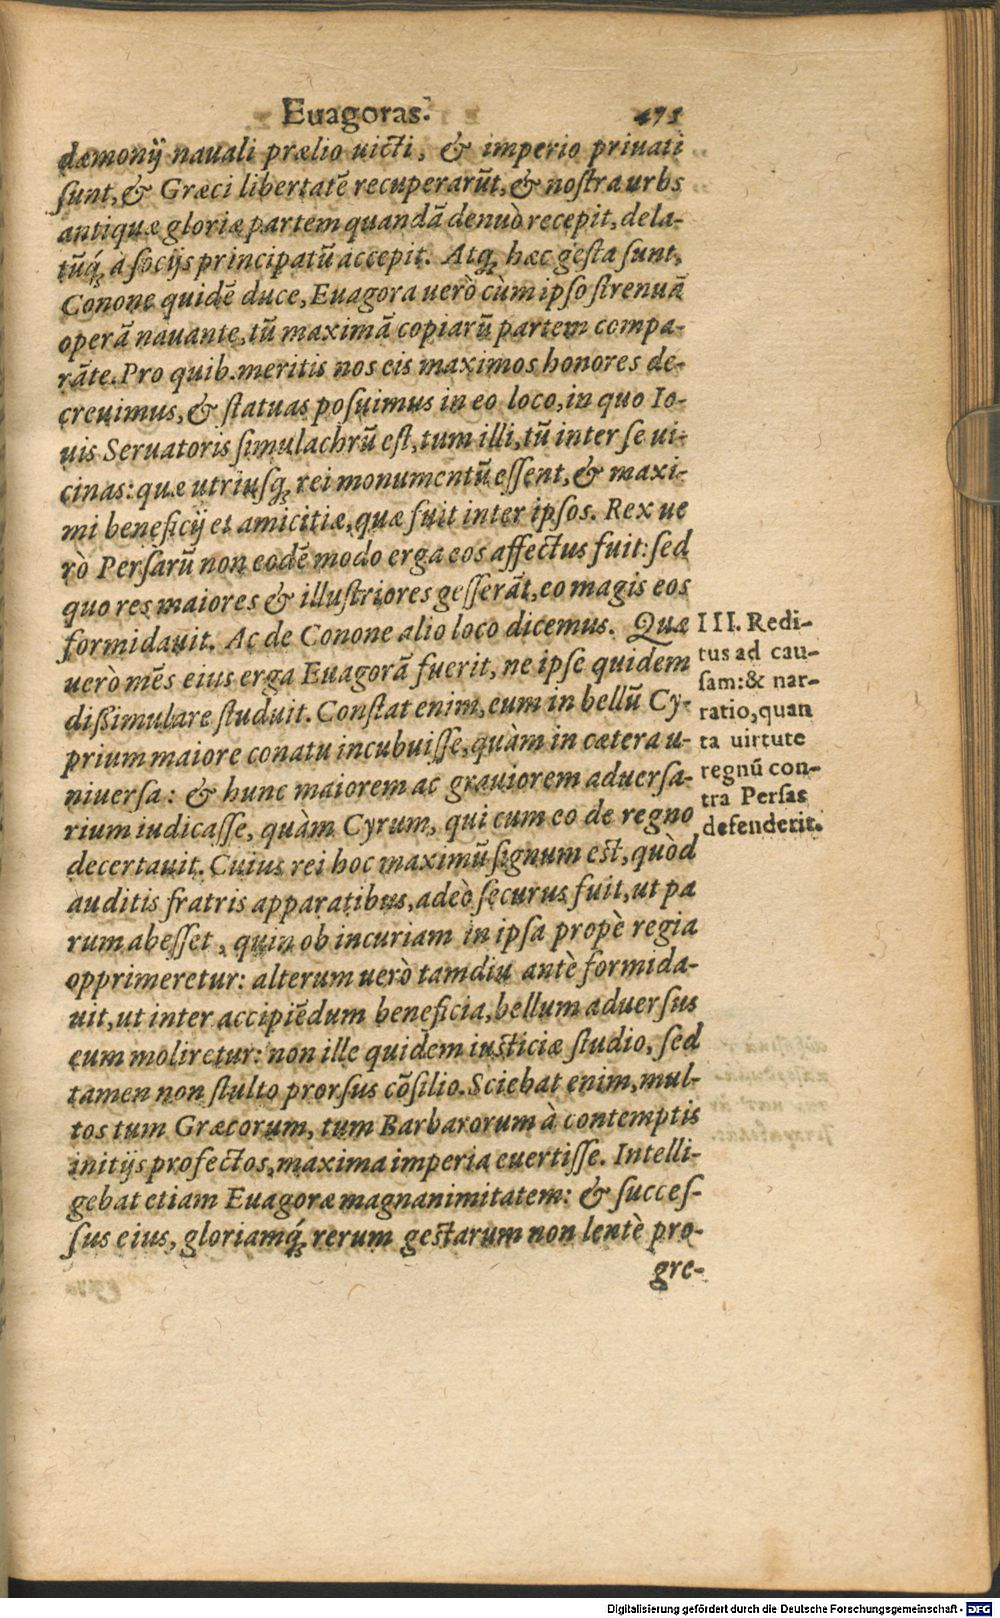 Euagoras. 475
dæmonij nauali prælio uicti, & imperio priuati
ſunt, & Græci libertatē recuperarūt, & noſtra urbs
antiquæ gloriæ partem quandā denuò recepit, dela-
tūq́; à ſocijs principatū accepit. Atq; hæc geſta ſunt,
Conone quidē duce, Euagora uerò cùm ipſo ſtrenuā
operā nauante, tū maximā copiarū partem compa-
rāte. Pro quib. meritis nos eis maximos honores de-
creuimus, & ſtatuas poſuimus in eo loco, in quo Io-
uis Seruatoris ſimulachrū eſt, tum illi, tū inter ſe ui-
cinas: quæ utriuſq; rei monumentū eſſent, & maxi-
mi beneficij et amicitiæ, quæ fuit inter ipſos. Rex ue
rò Perſarū non eodē modo erga eos affectus fuit: ſed
quo res maiores & illuſtriores geſſerāt, eo magis eos
formidauit. Ac de Conone alio loco dicemus. Quæ
uerò mēs eius erga Euagorā fuerit, ne ipſe quidem
dißimulare ſtuduit. Conſtat enim, eum in bellū Cy-
prium maiore conatu incubuiſſe, quàm in cætera u-
niuerſa: & hunc maiorem ac grauiorem aduerſa-
rium iudicaſſe, quàm Cyrum, qui cum eo de regno
decertauit. Cuius rei hoc maximū ſignum eſt, quòd
auditis fratris apparatibus, adeò ſecurus fuit, ut pa
rum abeſſet, quin ob incuriam in ipſa propè regia
opprimeretur: alterum uerò tamdiu antè formida-
uit, ut inter accipiēdum beneficia, bellum aduerſus
eum moliretur: non ille quidem iuſticiæ ſtudio, ſed
tamen non ſtulto prorſus cōſilio. Sciebat enim, mul-
tos tum Græcorum, tum Barbarorum à contemptis
initijs profectos, maxima imperia euertiſſe. Intelli-
gebat etiam Euagoræ magnanimitatem: & ſucceſ-
ſus eius, gloriamq́; rerum geſtarum non lentè pro-
gre-
III. Redi-
tus ad cau-
ſam: & nar-
ratio, quan
ta uirtute
regnū con-
tra Perſas
defenderit.
Digitalisierung gefördert durch die Deutsche Forschungsgemeinschaft - DFG